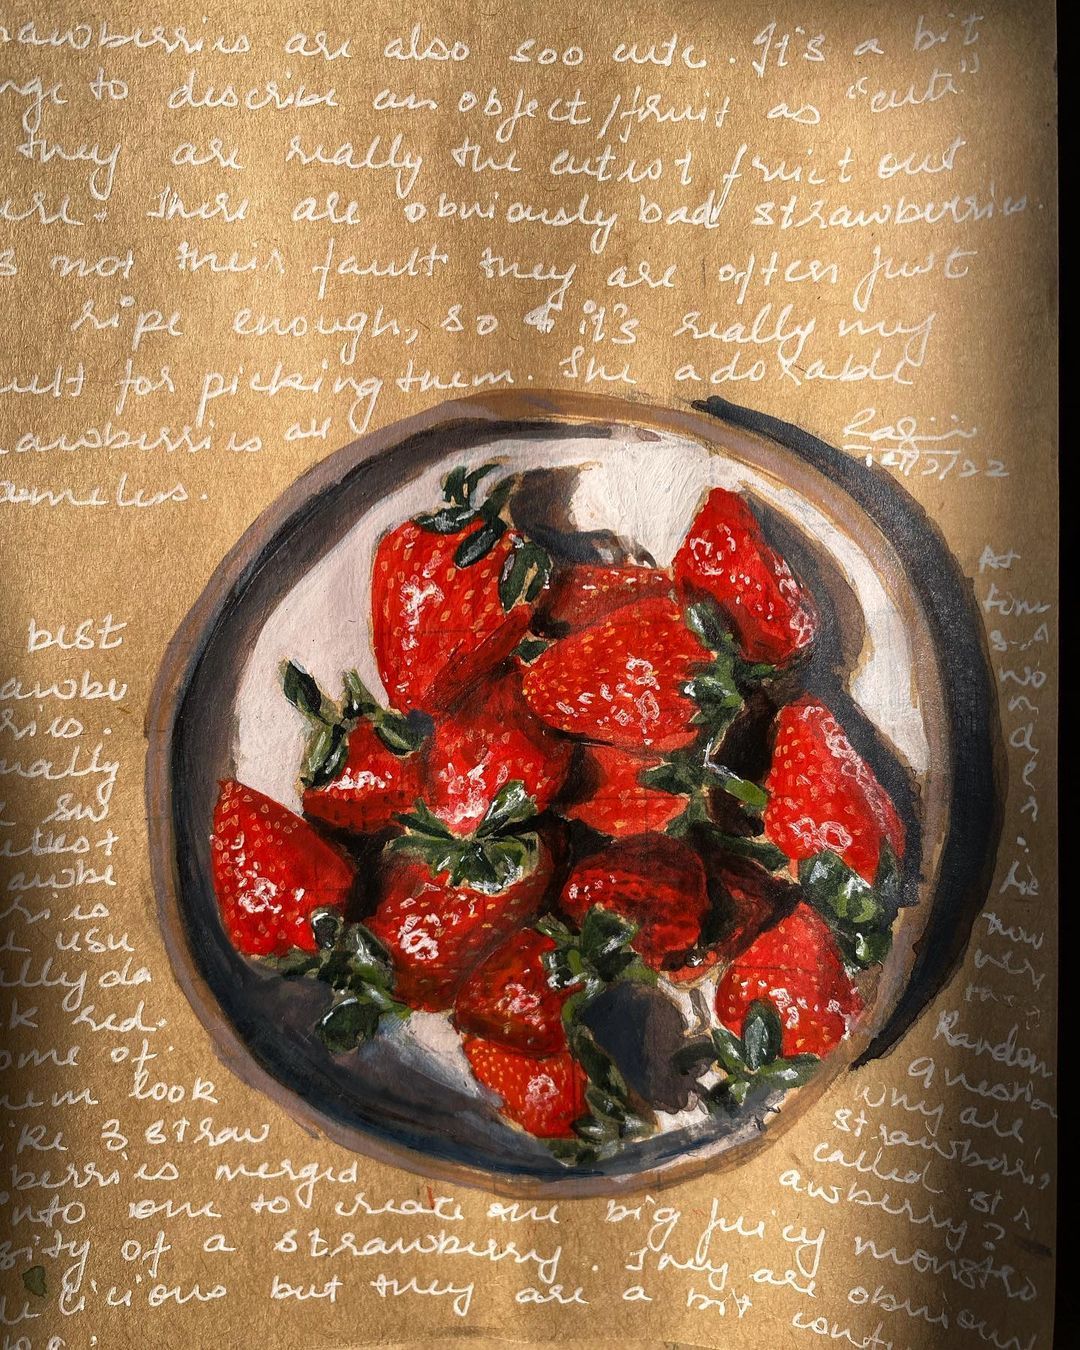 rawberries are also soo cute. It's a bit
nge to describe an object/fruit as "cute"
they are really the cutest fruit out
ere. There are obviously bad strawberries.
s not their fault they are often just
ripe enough, so it's really my
ult for picking them. The adorable
rawberries are
ameless.
12/2/22
best
awbe
rries.
ually
cutest
awbe
rries
usu
ally da
k red.
ome of
hem look
ike 3 straw
berries merged
into one to create one big juicy monstro
sity of a strawberry. They are obviousl
licious but they are a bit cont
At
time
s I
wo
n
d
e
r
:
Random
Question
why are
strawberries
called str
awberry?